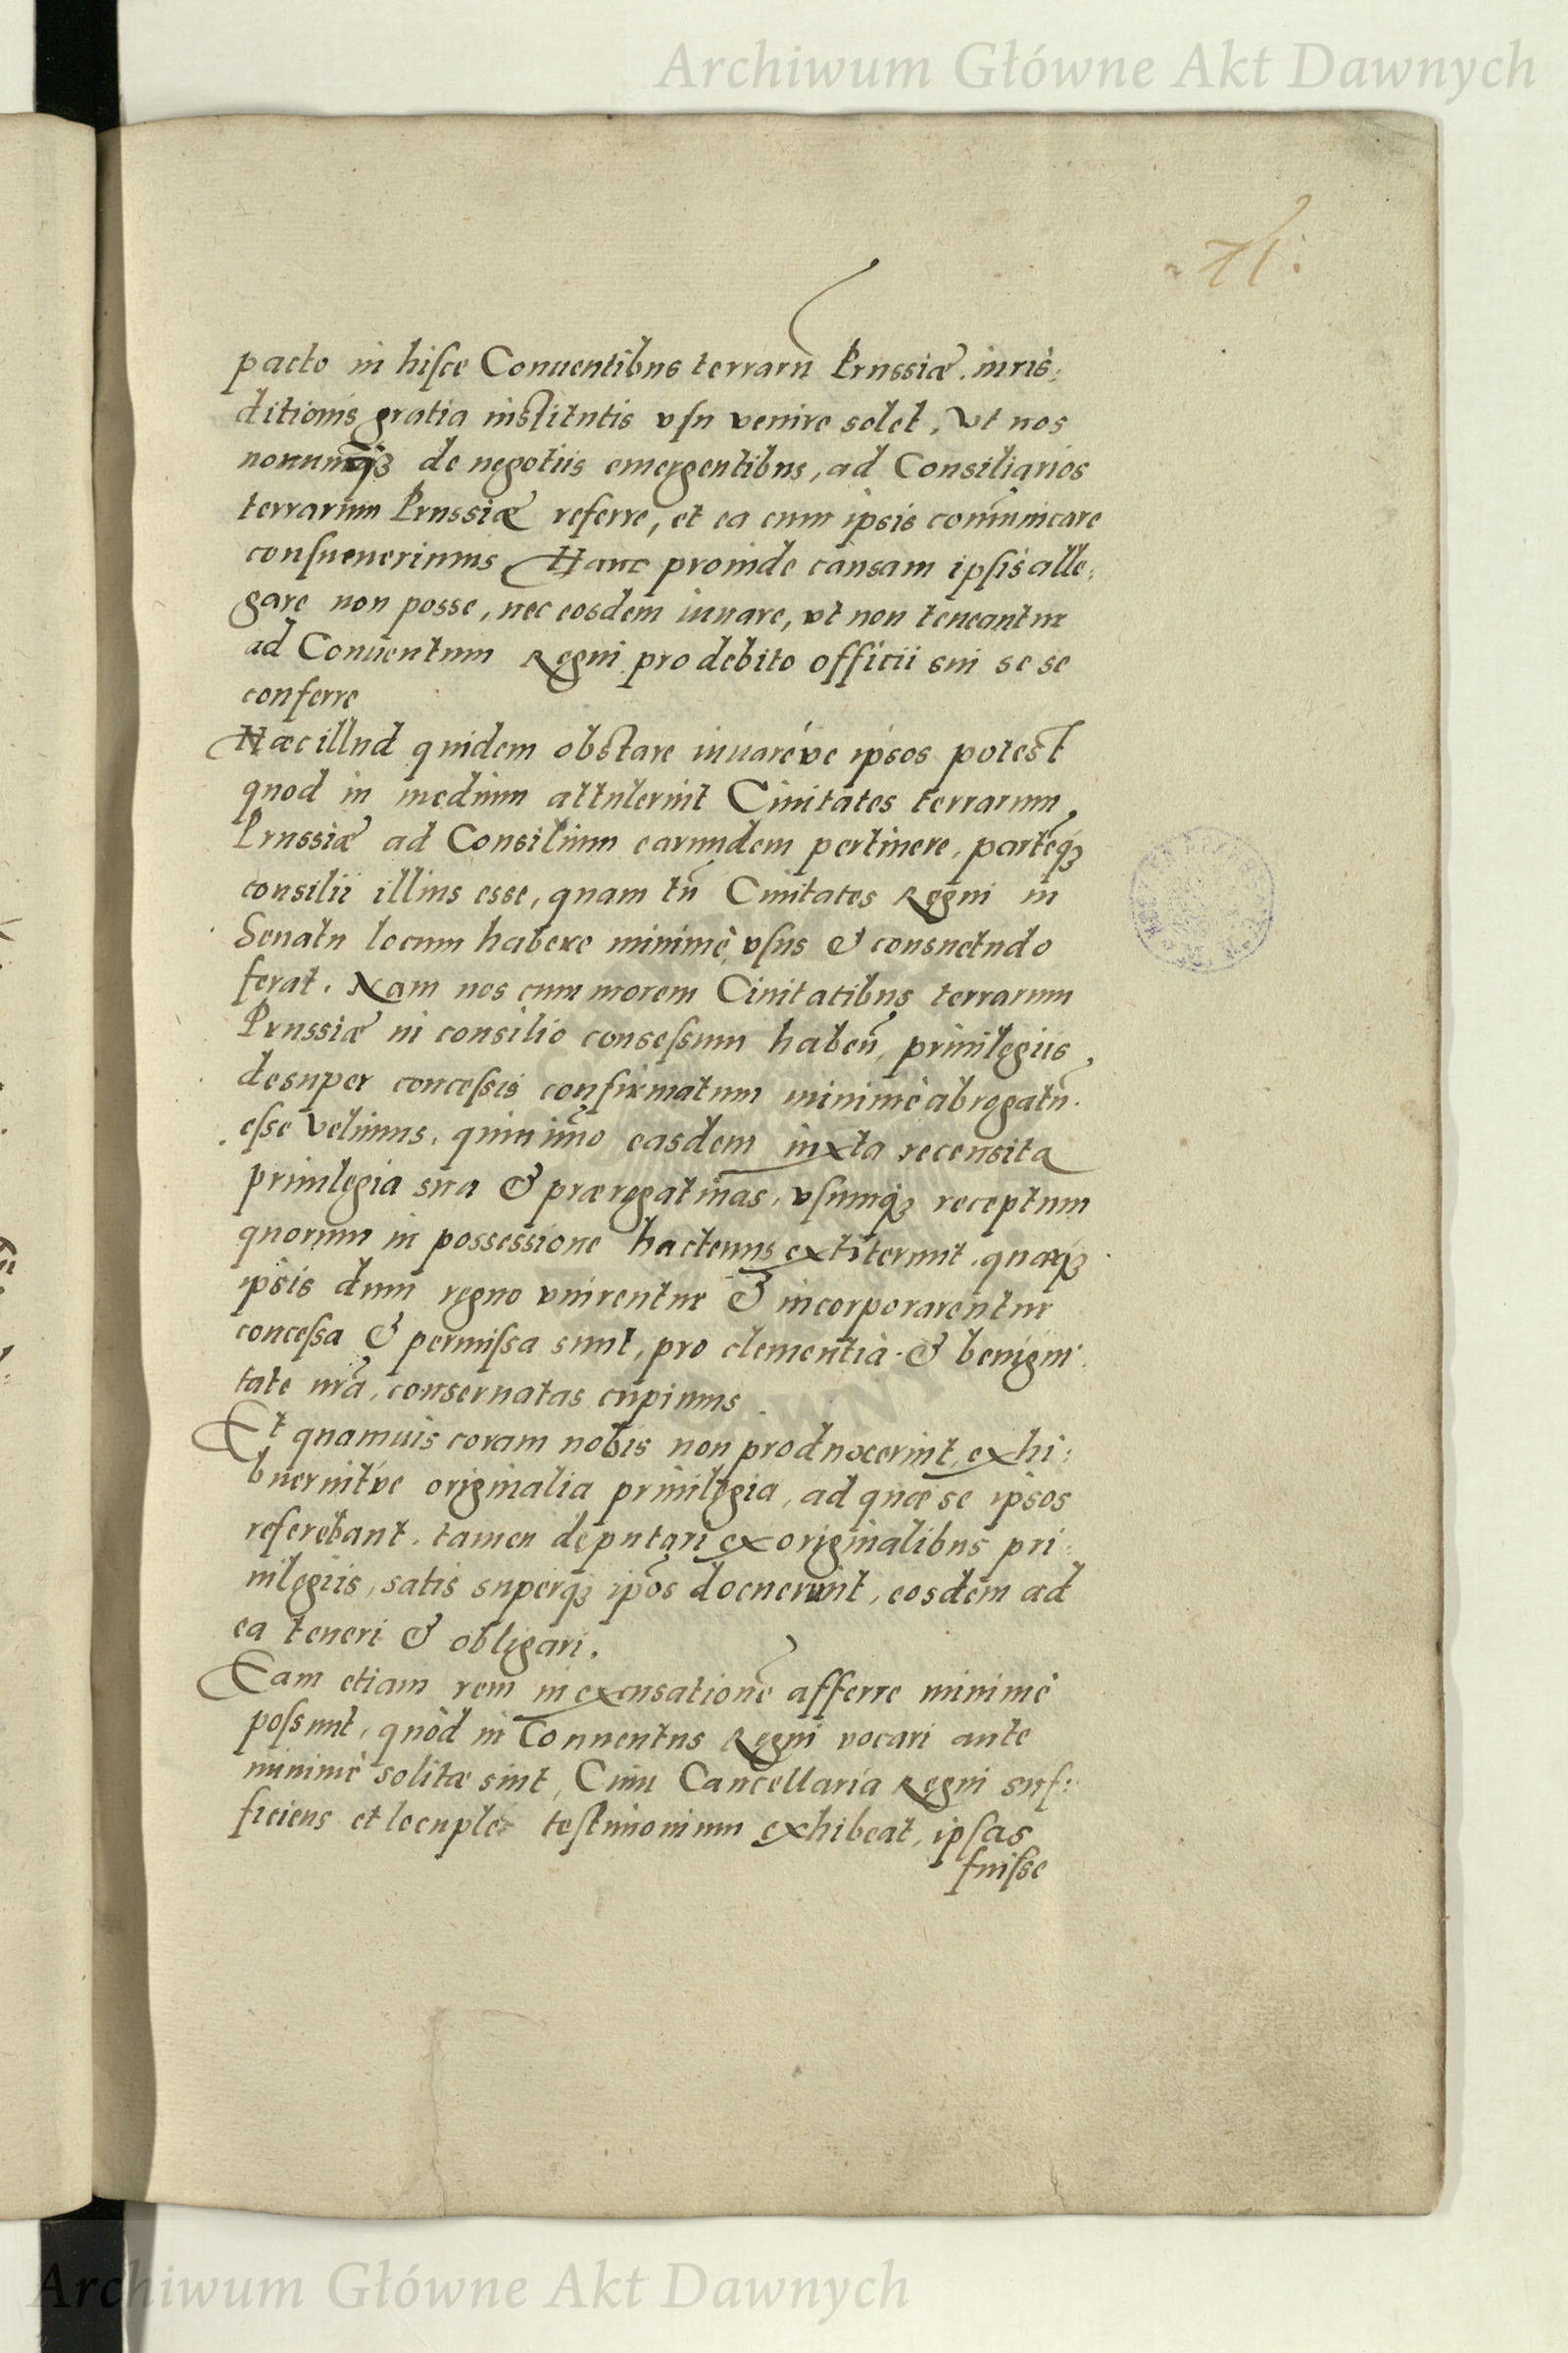 Archiwum Główne Akt Dawnych
71.
pacto in hisce Conuentibus terrarū Prussiæ, iuris:
ditionis gratia institutis vsu venire solet, Vt nos
nonunq̃ʒ de negotiis emergentibus, ad Consiliarios
terrarum Prussiæ referre, et ea cum ipsis com̄unicare
consueuerimus Hanc proinde causam ipsis alle:
gare non posse, nec eosdem iuuare, vt non teneantur
ad Conuentum Regni pro debito officii sui se se
conferre
Næc illud quidem obstare iuuaréve ipsos potest
quod in medium attulerint Ciuitates terrarum
Prussiæ ad Consilium earundem pertinere, partēqʒ
consilii illius esse, quam tn̄ Ciuitates Regni in
Senatu locum habere minimè vsus & consuetudo
ferat. Nam nos cum morem Ciuitatibus terrarum
Prussiæ in consilio consessum habēn, priuilegiis
desuper concessis confirmatum minimè abrogatū
esse velimus, quinim̄o easdem iuxta recensita
priuilegia sua & prærogatiuas, vsumqʒ receptum
quorum in possessione hactenus extiterunt, quæqʒ
ipsis dum regno vnirentur & incorporarentur
concessa & permissa sunt, pro clementia & benigni:
tate nr̄a, conseruatas cupimus
Et quamuis coram nobis non produxerint, exhi:
buerintve originalia priuilegia, ad quæ se ipsos
referebant, tamen deputari ex originalibus pri:
uilegiis, satis superqʒ ip̄os docuerunt, eosdem ad
ea teneri & obligari.
Eam etiam rem in excusationē afferre minimè
possunt, quòd in Conuentus Regni vocari ante
minimè solitæ sint, Cum Cancellaria Regni suf:
ficiens et locuples testimonium exhibeat, ipsas
fuisse
Archiwum Główne Akt Dawnych